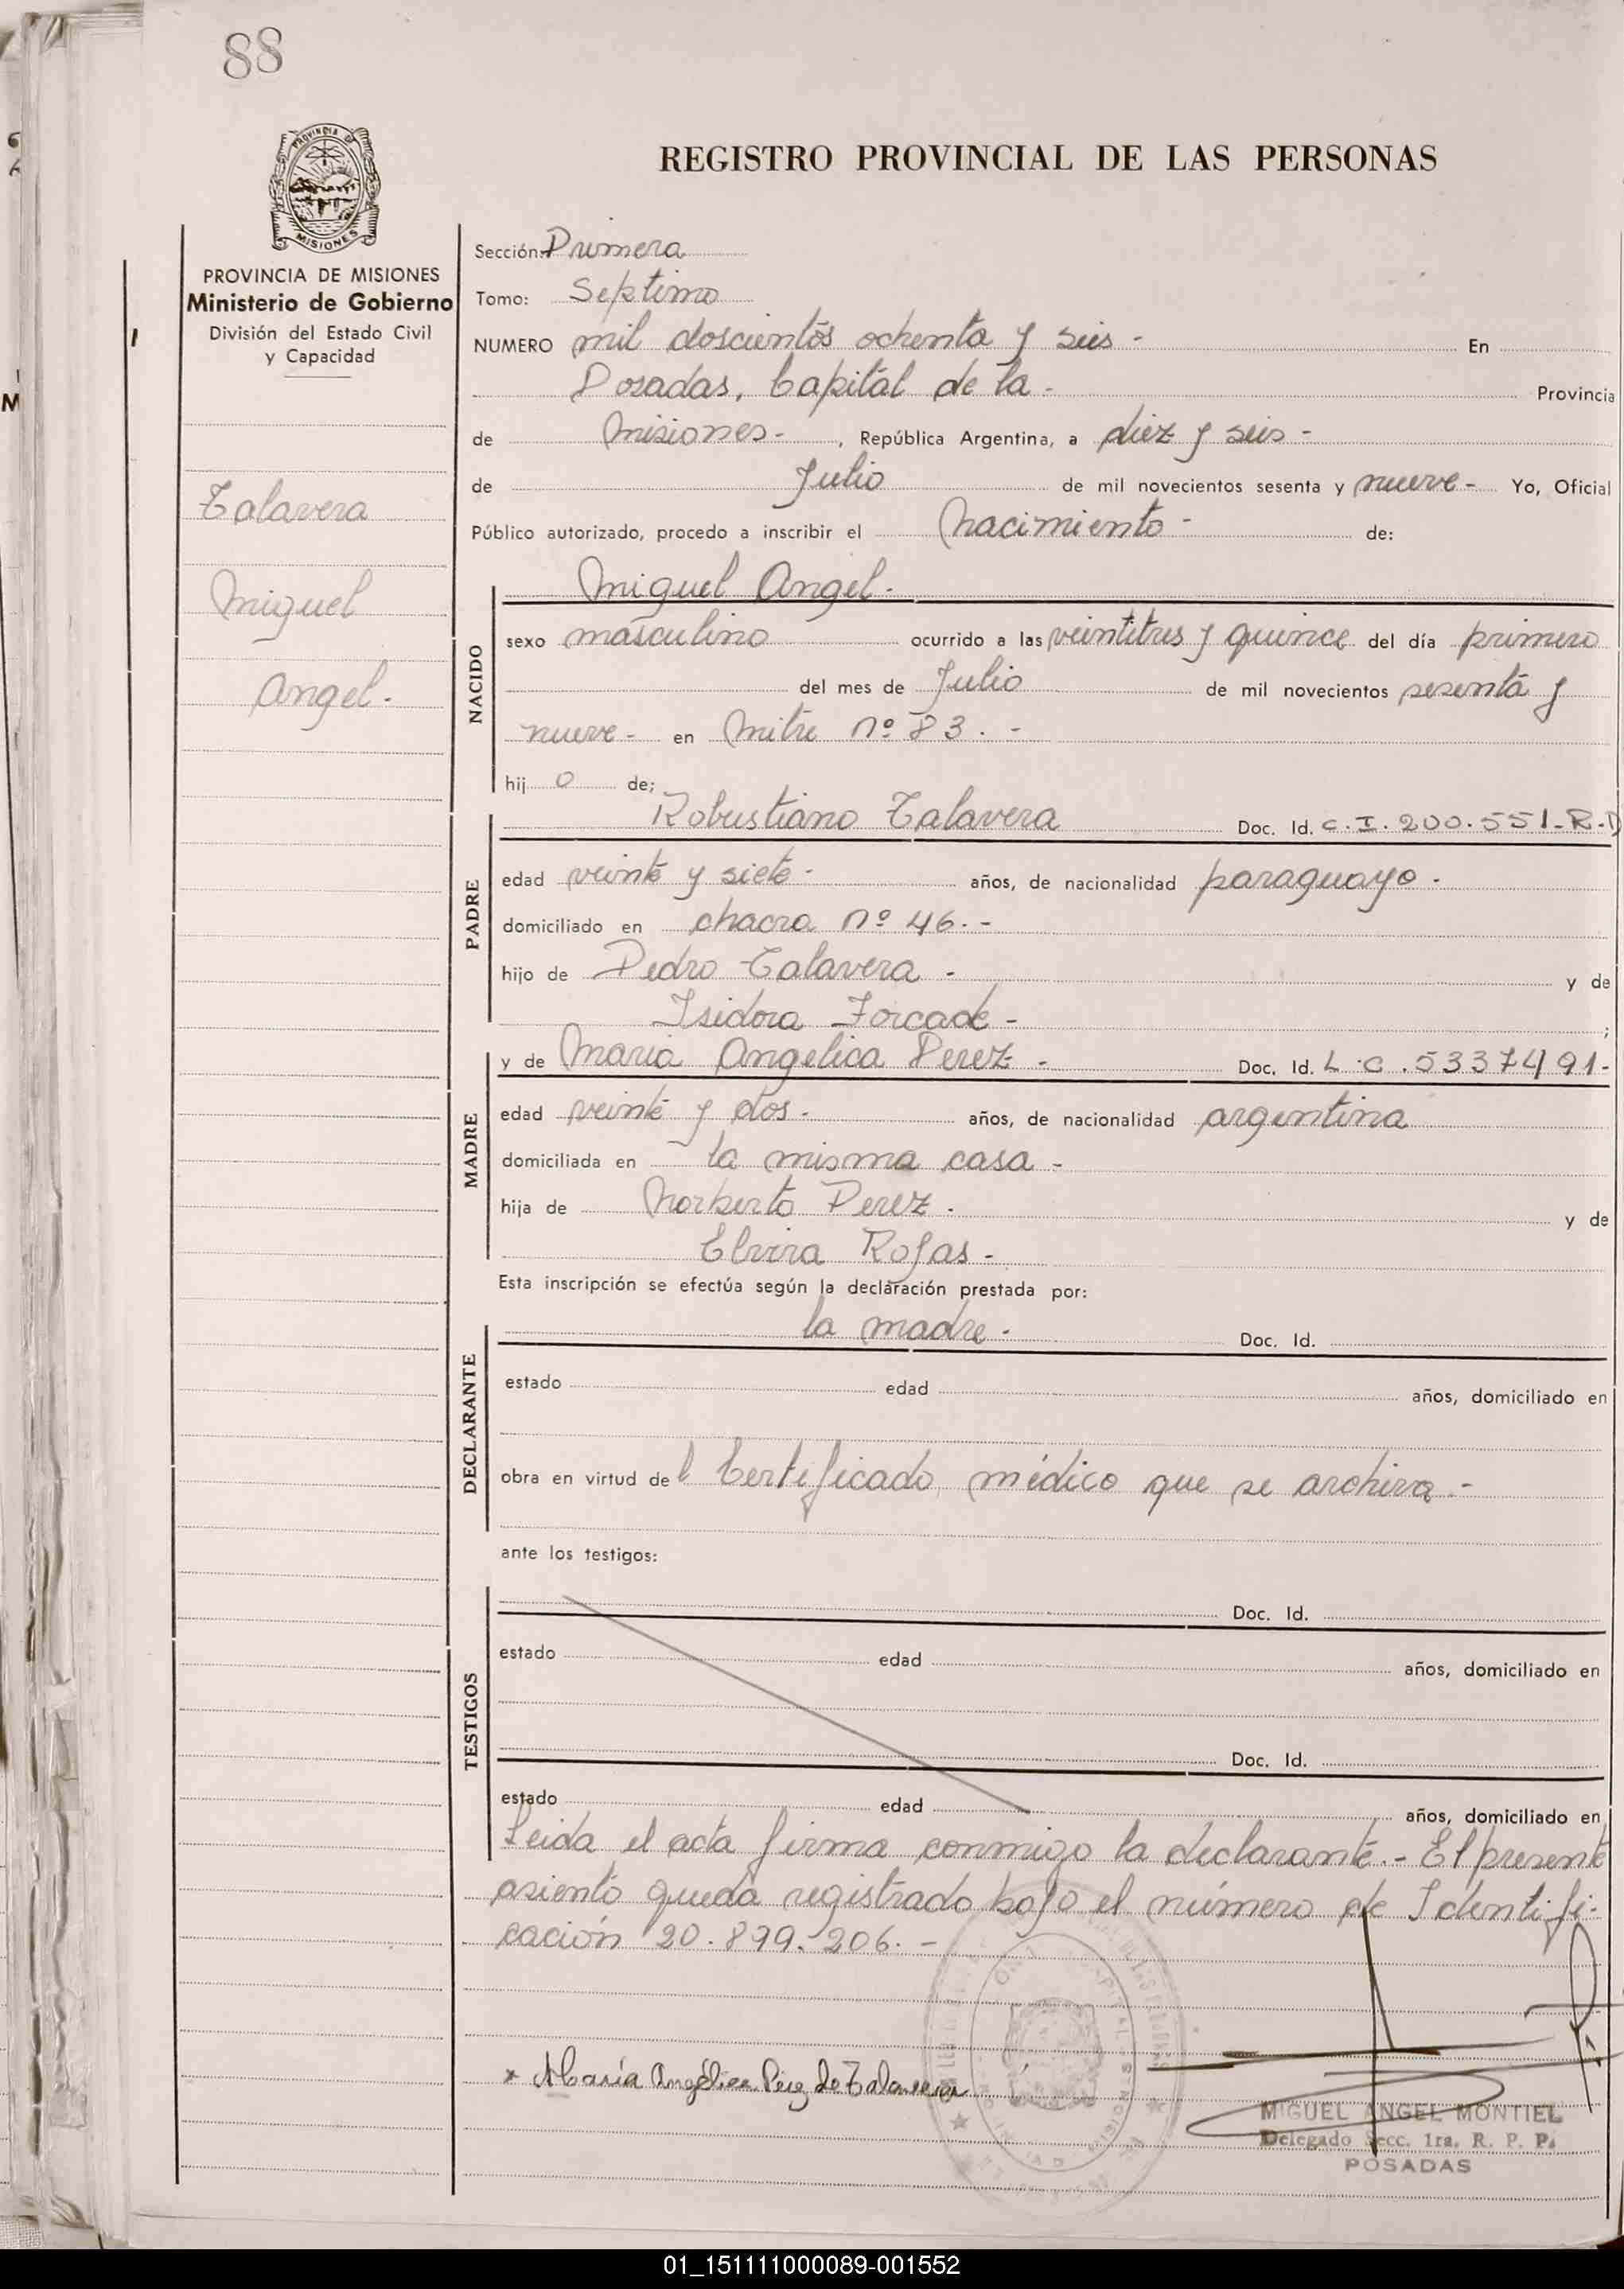 88
PROVINCIA DE
MISIONES
PROVINCIA DE MISIONES
Ministerio de Gobierno
División del Estado Civil
y Capacidad
Talavera
Miguel
Angel.-
REGISTRO PROVINCIAL DE LAS PERSONAS
Sección: Primera
Tomo: Septimo
NUMERO mil doscientos ochenta y seis - En
Posadas, Capital de la - Provincia
de Misiones - , República Argentina, a diez y seis -
de Julio de mil novecientos sesenta y nueve - Yo, Oficial
Público autorizado, procedo a inscribir el nacimiento - de:
Miguel Angel.-
NACIDO
sexo masculino ocurrido a las veintitres y quince del día primero
del mes de Julio de mil novecientos sesenta y
nueve - en Mitre nº 83. -
hijo de;
PADRE
Robustiano Talavera Doc. Id. C.I. 200.551-R.P
edad veinte y siete - años, de nacionalidad paraguayo -
domiciliado en chacra nº 46. -
hijo de Pedro Talavera - y de
Isidora Forcade - ;
MADRE
y de Maria Angelica Perez - Doc. Id. L.C. 5337491-
edad veinte y dos - años, de nacionalidad argentina
domiciliada en la misma casa -
hija de Norberto Perez - y de
Elvira Rojas -
Esta inscripción se efectúa según la declaración prestada por:
DECLARANTE
la madre - Doc. Id.
estado edad años, domiciliado en
obra en virtud del Certificado médico que se archiva.-
ante los testigos:
TESTIGOS
Doc. Id.
estado edad años, domiciliado en
Doc. Id.
estado edad años, domiciliado en
Leida el acta firma conmigo la declarante.- El presente
asiento queda registrado bajo el número de Identifi-
cación 20.899.206. -
x María Angélica Pérez de Talavera
MIGUEL ANGEL MONTIEL
Delegado Secc. 1ra. R. P. P.
POSADAS
01_151111000089-001552